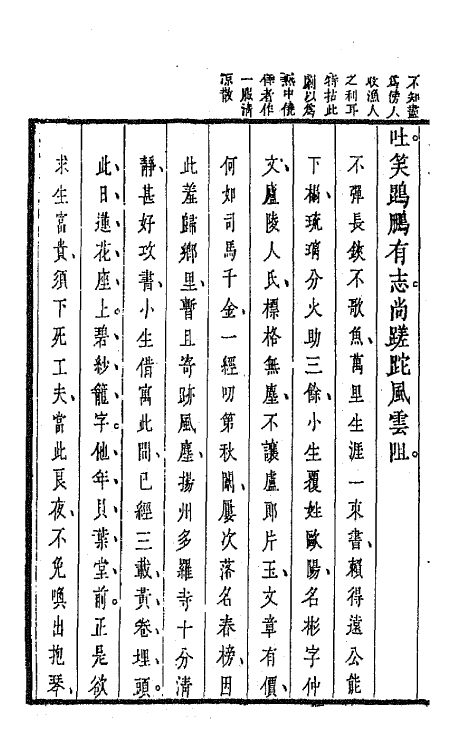 不知盡
爲傍人
收漁人
之利耳
特拈此
劇以爲
熱中僥
倖者作
一服清
凉散
吐。笑鵾鵬有志。尚蹉跎風雲阻。
不彈長鋏不歌魚、萬里生涯一束書、賴得遠公能
下榻、琉璃分火助三餘、小生覆姓歐陽、名彬、字仲
文、廬陵人氏、標格無塵、不讓盧郎片玉、文章有價、
何如司馬千金、一經叨第秋闈、屢次落名春榜、因
此羞歸鄉里、暫且寄跡風塵、揚州多羅寺十分清
靜、甚好攻書、小生借寓此間、已經三載、黃卷埋頭。
此日蓮花座上。碧紗籠字。他年貝葉堂前。正是欲
求生富貴、須下死工夫、當此長夜、不免喚出抱琴、